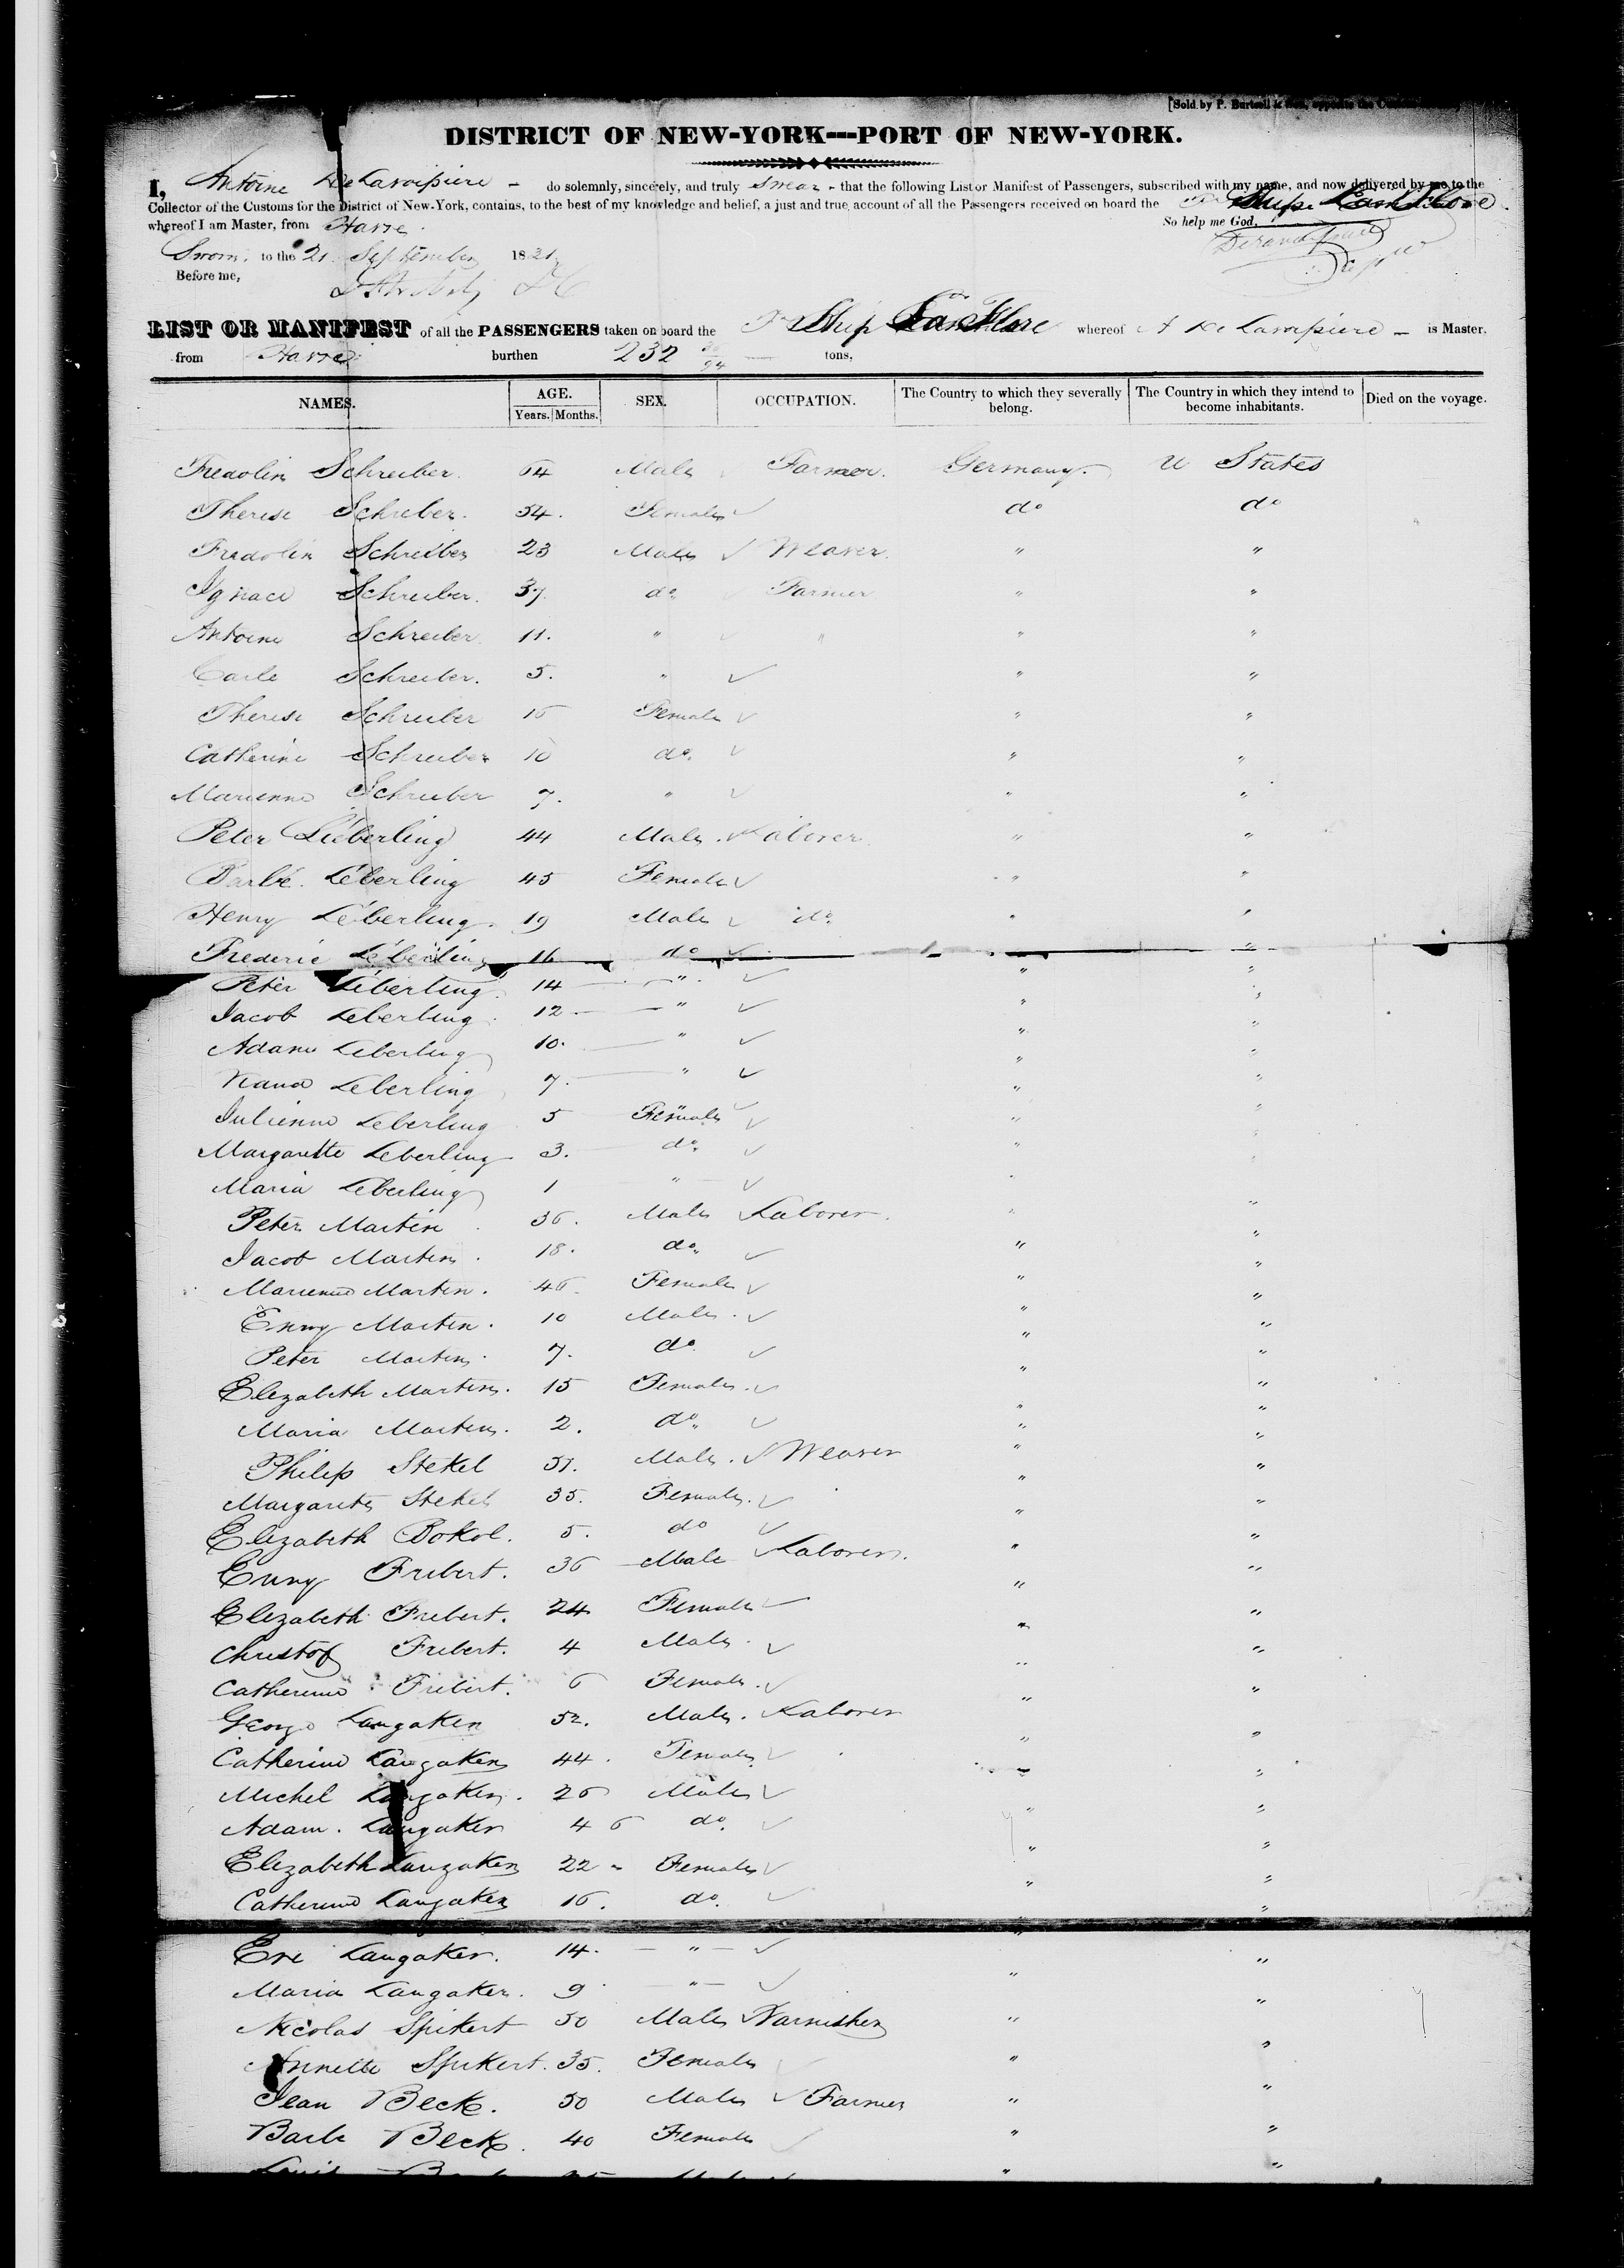 [Sold by P. Burtsell &
DISTRICT OF NEW-YORK---PORT OF NEW-YORK.
I, Antoine - do solemnly, sincerely, and truly swear - that the following List or Manifest of Passengers, subscribed with my name, and now delivered by me to the
Collector of the Customs for the District of New-York, contains, to the best of my knowledge and belief, a just and true account of all the Passengers received on board the Ship
whereof I am Master, from Havre. So help me God,
Sworn, to the 21 September 1831
Before me,
LIST OR MANIFEST of all the PASSENGERS taken on board the Ship whereof A is Master,
from Havre burthen 232 tons,
NAMES. AGE. SEX. OCCUPATION. The Country to which they severally belong. The Country in which they intend to become inhabitants. Died on the voyage.
Years. Months.
Fredolin Schreiber. 54 Male Farmer. Germany. U States
Therese Schreiber. 54. Female do do
Fredolin Schreiber 23 Male Weaver. " "
Ignace Schreiber. 37. do Farmer " "
Antoine Schreiber 11. " " " "
Carle Schreiber. 5. " " "
Therese Schreiber 15 Female " "
Catherine Schreiber 10 do. " "
Marienne Schreiber 7. " " "
Peter Lieberling 44 Male. Laborer. " "
Barbe. Léberling 45 Female " "
Henry Léberling. 19 Male do. " "
Frederic Léberling 16 do "
Peter Léberling. 14 " " "
Jacob Leberling. 12 " " "
Adam Leberling 10. " " "
Leberling 7. " " "
Julienne Leberling 5 Female " "
Margarette Leberling 3. do. " "
Maria Leberling 1 " "
Peter Martin 36. Male Laborer. " "
Jacob Martin. 18. do. " "
Marienne Martin. 46. Female " "
Enny Martin. 10 Male. " "
Peter Martin. 7. do. " "
Elizabeth Martin. 15 Female. " "
Maria Martin. 2. do. " "
Philip Stekel 51. Male. Weaver " "
Margarets Stekel 35. Female. " "
Elizabeth Bokol. 5. do " "
Enny Fribert. 36 Male Laborer. " "
Elizabeth Fribert. 24 Female " "
Christof Fribert. 4 Male. " "
Catherine Fribert. 6 Female. " "
George Langaken 52. Male. Laborer " "
Catherine Langaken 44. Female " "
Michel Langaken. 26 Male " "
Adam. Langaken 4 6 do. " "
Elizabeth Langaken 22 Female " "
Catherine Langaken 16. do. " "
Eve Langaken. 14. " " "
Maria Langaken. 9 " " "
Nicolas Spikert 50 Male Varnisher " "
Annette Spikert. 35. Female " "
Jean Beck. 50 Male Farmer " "
Barbe Beck. 40 Female " "